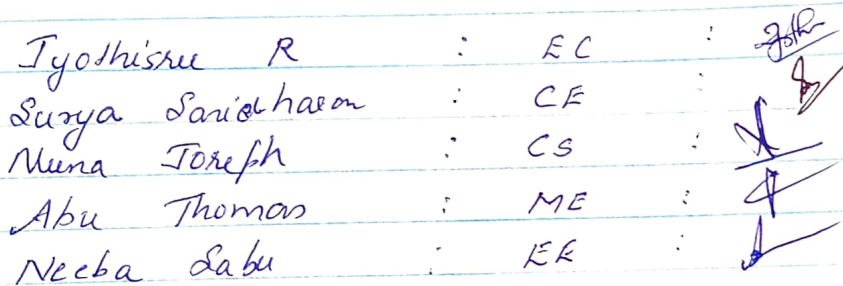 Jyothisree R : EC :
Surya Saridharan : CE :
Muna Joseph : CS :
Abu Thomas : ME :
Neeba Sabu : EE :